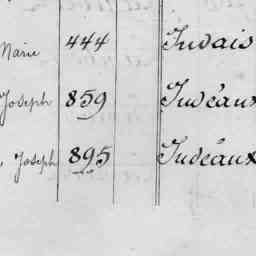 Marie 444 Juvais
Joseph 859 Judéaux
, Joseph 895 Judéaux